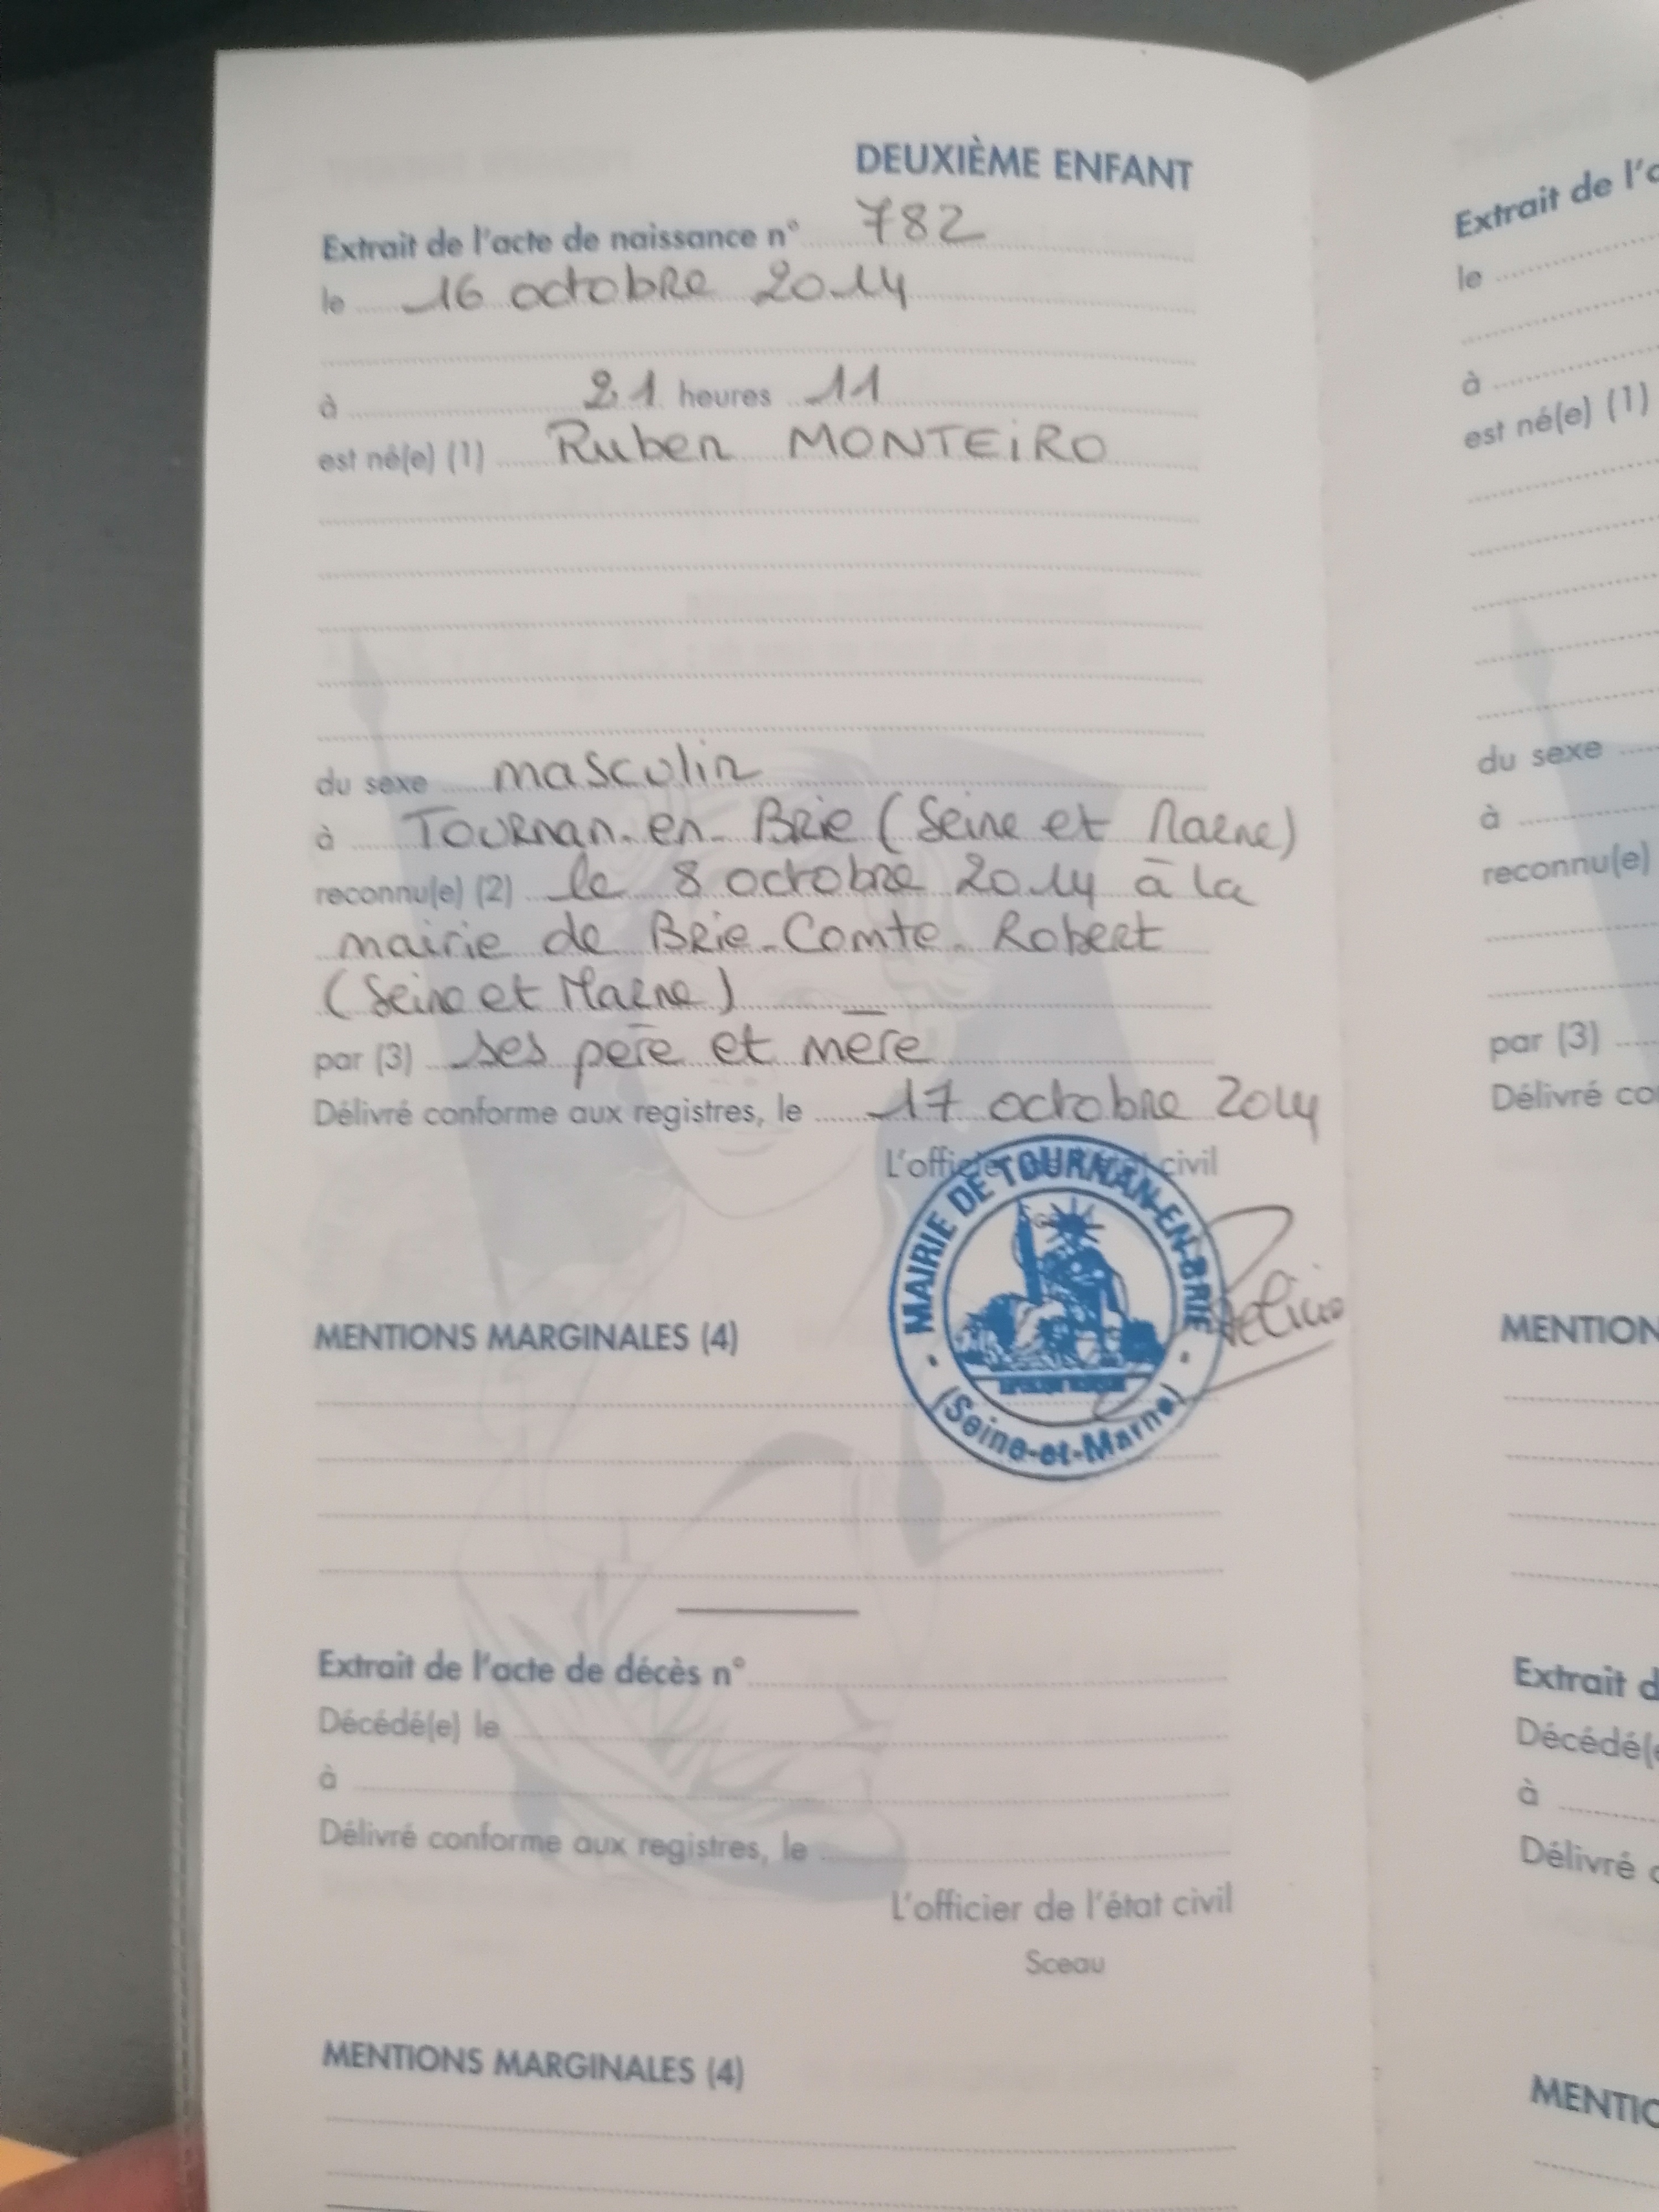 DEUXIÈME ENFANT
Extrait de l'acte de naissance n° 782
le 16 octobre 2014
à 21 heures 11
est né(e) (1) Ruben MONTEIRO
du sexe masculin
à Tournan-en-Brie (Seine et Marne)
reconnu(e) (2) le 8 octobre 2014 à la
mairie de Brie-Comte-Robert
(Seine et Marne)
par (3) ses père et mère
Délivré conforme aux registres, le 17 octobre 2014
L'officier civil
MAIRIE DE TOURNAN-EN-BRIE
(Seine-et-Marne)
MENTIONS MARGINALES (4)
Extrait de l'acte de décès n°
Décédé(e) le
à
Délivré conforme aux registres, le
L'officier de l'état civil
Sceau
MENTIONS MARGINALES (4)
Extrait de l'
le
à
est né(e) (1)
du sexe
à
reconnu(e)
par (3)
Délivré
MENTION
Extrait
Décédé(
à
Délivré